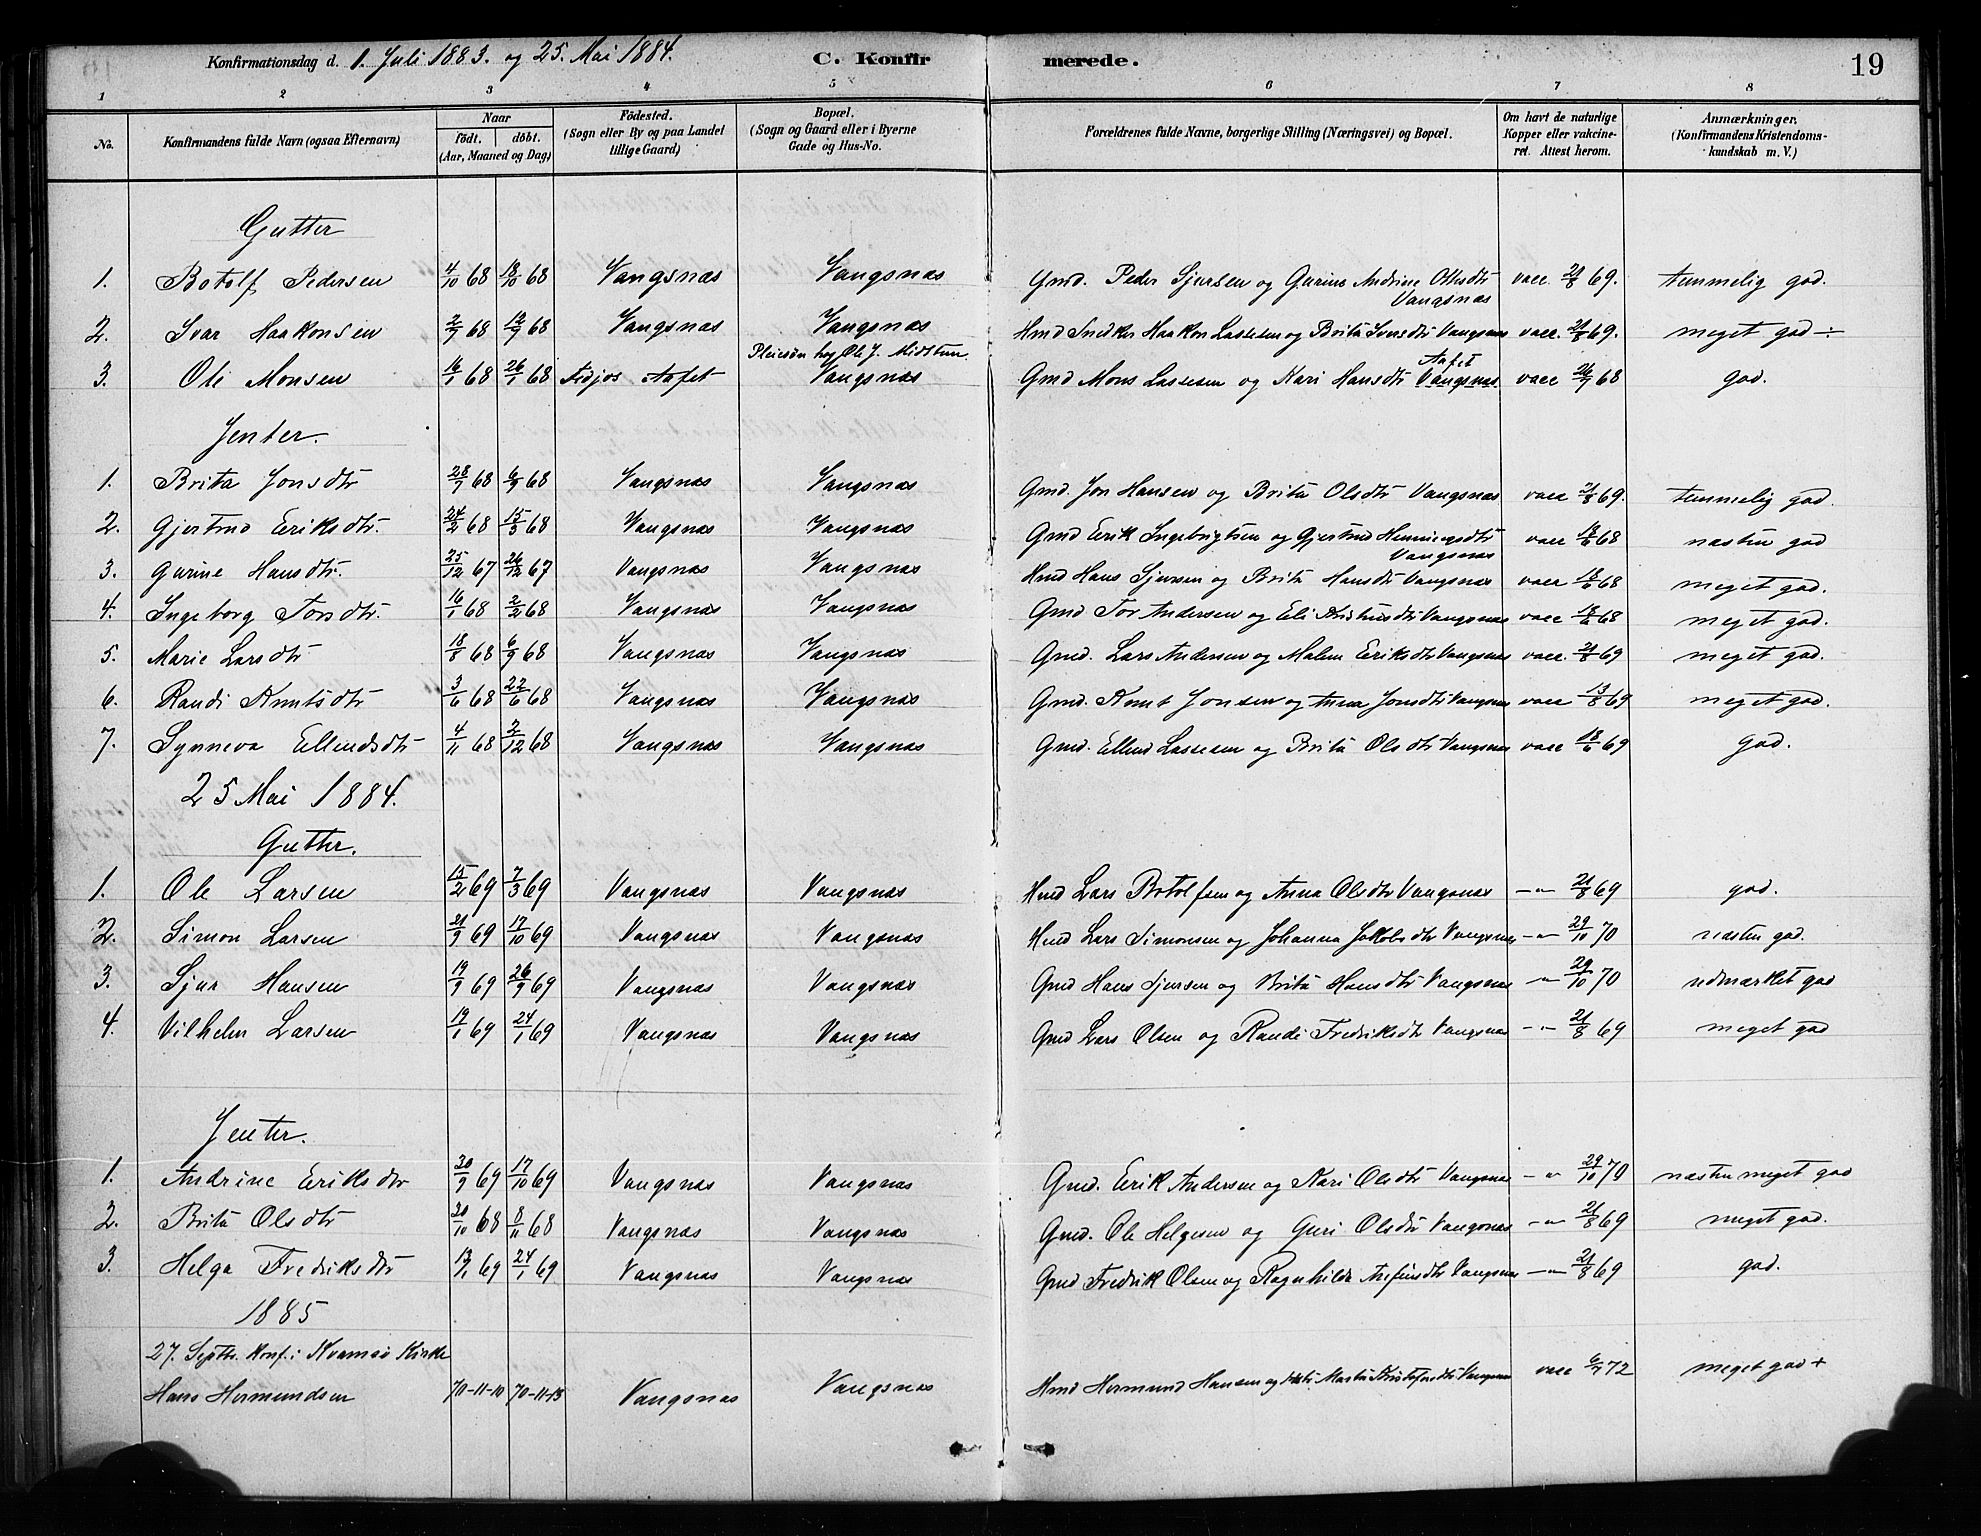 Konfirmationsdag d. 1. Juli 1883. og 25. Mai 1884. C. Konfirmerede. 19
1 2 3 4 5 6 7 8
No. Konfirmandens fulde Navn (ogsaa Efternavn) Naar født. døbt. (Aar, Maaned og Dag) Fødested. (Sogn eller By og paa Landet tillige Gaard) Bopæl. (Sogn og Gaard eller i Byerne Gade og Hus-No. Forældrenes fulde Navne, borgerlige Stilling (Næringsvei) og Bopæl. Om havt de naturlige Kopper eller vakcineret. Attest herom. Anmærkninger. (Konfirmandens Kristendomskundskab m. V.)
Gutter
1. Botolf Pedersen 4/10 68 18/10 68 Vangsnæs Vangsnæs Gmd. Peder Sjursen og Gurine Andrine Olsdtr Vangsnæs vacc. 21/8 69. temmelig god.
2. Ivar Haakonsen 2/7 68 12/7 68 Vangsnæs Vangsnæs Hmd Snedker Haakon Lassesen og Brita Ivarsdtr Vangsnæs vacc. 21/8 69. meget god -:
3. Ole Monsen 16/1 68 26/1 68 Aafet Pleiesøn hos Ole J. Midttun Vangsnæs Gmd Mons Lassesen og Kari Hansdtr Aafet Vangsnæs vacc 26/7 68 god.
Jenter.
1. Brita Jonsdtr 28/7 68 6/9 68 Vangsnæs Vangsnæs Gmd. Jon Hansen og Brita Olsdtr Vangsnæs vacc 21/8 69. temmelig god.
2. Gjertrud Eriksdtr. 24/2 68 15/3 68 Vangsnæs Vangsnæs Gmd Erik Ingebrigtsen og Gjertrud Henningsdtr Vangsnæs vacc 18/6 68 næsten god
3. Gurine Hansdtr. 25/12 67 26/12 67 Vangsnæs Vangsnæs Hmd Hans Sjursen og Brita Hansdtr Vangsnæs vacc 18/6 68 meget god.
4. Ingeborg Torsdtr. 16/1 68 2/2 68 Vangsnæs Vangsnæs Gmd Tor Andersen og Eli Vangsnæs vacc 18/6 68 meget god.
5. Marie Larsdtr 18/8 68 6/9 68 Vangsnæs Vangsnæs Gmd. Lars Andersen og Malene Eriksdtr Vangsnæs vacc. 21/8 69 meget god.
6. Randi Knutsdtr 3/6 68 22/6 68 Vangsnæs Vangsnæs Gmd. Knut Jonsen og Anna Jonsdtr Vangsnæs vacc 13/8 69 meget god.
7. Synneva Ellendsdtr 4/11 68 2/12 68 Vangsnæs Vangsnæs Gmd. Ellend Lassesen og Brita Olsdtr Vangsnæs vacc 18/6 69 god.
25 Mai 1884.
Gutter.
1. Ole Larsen 15/2 69 7/3 69 Vangsnæs Vangsnæs Hmd Lars Botolfsen og Anna Olsdtr Vangsnæs -"- 21/8 69 god.
2. Simon Larsen 21/9 69 17/10 69 Vangsnæs Vangsnæs Hmd Lars Simonsen og Johanna Jakobsdtr Vangsnæs -"- 29/10 70 næsten god.
3. Sjur Hansen 19/9 69 26/9 69 Vangsnæs Vangsnæs Gmd Hans Sjursen og Brita Hansdtr Vangsnæs -"- 29/10 70 udmærket god
4. Vilhelm Larsen 19/1 69 24/1 69 Vangsnæs Vangsnæs Gmd Lars Olsen og Randi Fredriksdtr Vangsnæs -"- 21/8 69 meget god
Jenter.
1. Andrine Eriksdtr 30/9 69 17/10 69 Vangsnæs Vangsnæs Gmd. Erik Andersen og Kari Olsdtr Vangsnæs -"- 29/10 70 næsten meget god
2. Brita Olsdtr 30/10 68 8/11 68 Vangsnæs Vangsnæs Gmd. Ole Helgesen og Guri Olsdtr Vangsnæs -"- 21/8 69 meget god.
3. Helga Fredriksdtr 13/1 69 24/1 69 Vangsnæs Vangsnæs Gmd Fredrik Olsen og Ragnhilda Vangsnæs -"- 21/8 69 god.
1885
27. Septbr. konf. i Kvamsø Kirke
Hans Hermundsen 70-11-10 70-11-13 Vangsnæs Vangsnæs Hmd Hermund Hansen og Marta Kristofersdtr Vangsnæs vacc 6/7 72 meget god +